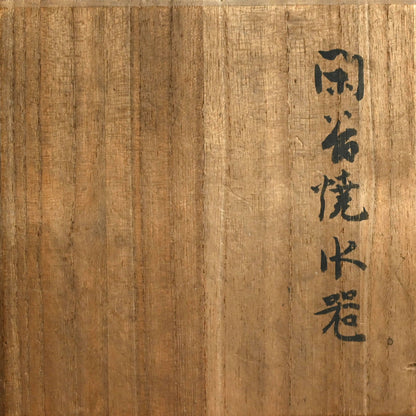 閑谷焼水器